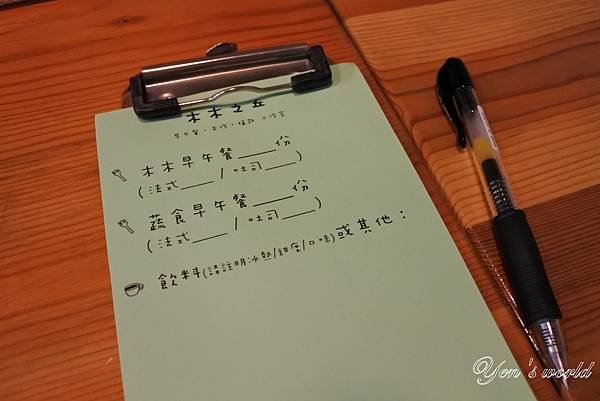 木木之丘
木木早午餐____份
(法式____ / 吐司____)
蔬食早午餐____份
(法式____ / 吐司____)
飲料(請註明冰熱/甜度/口味)或其他：
Yen's world